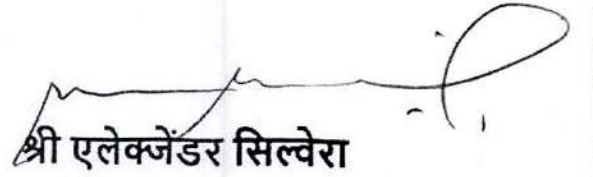 श्री एलेक्जेंडर सिल्वेरा